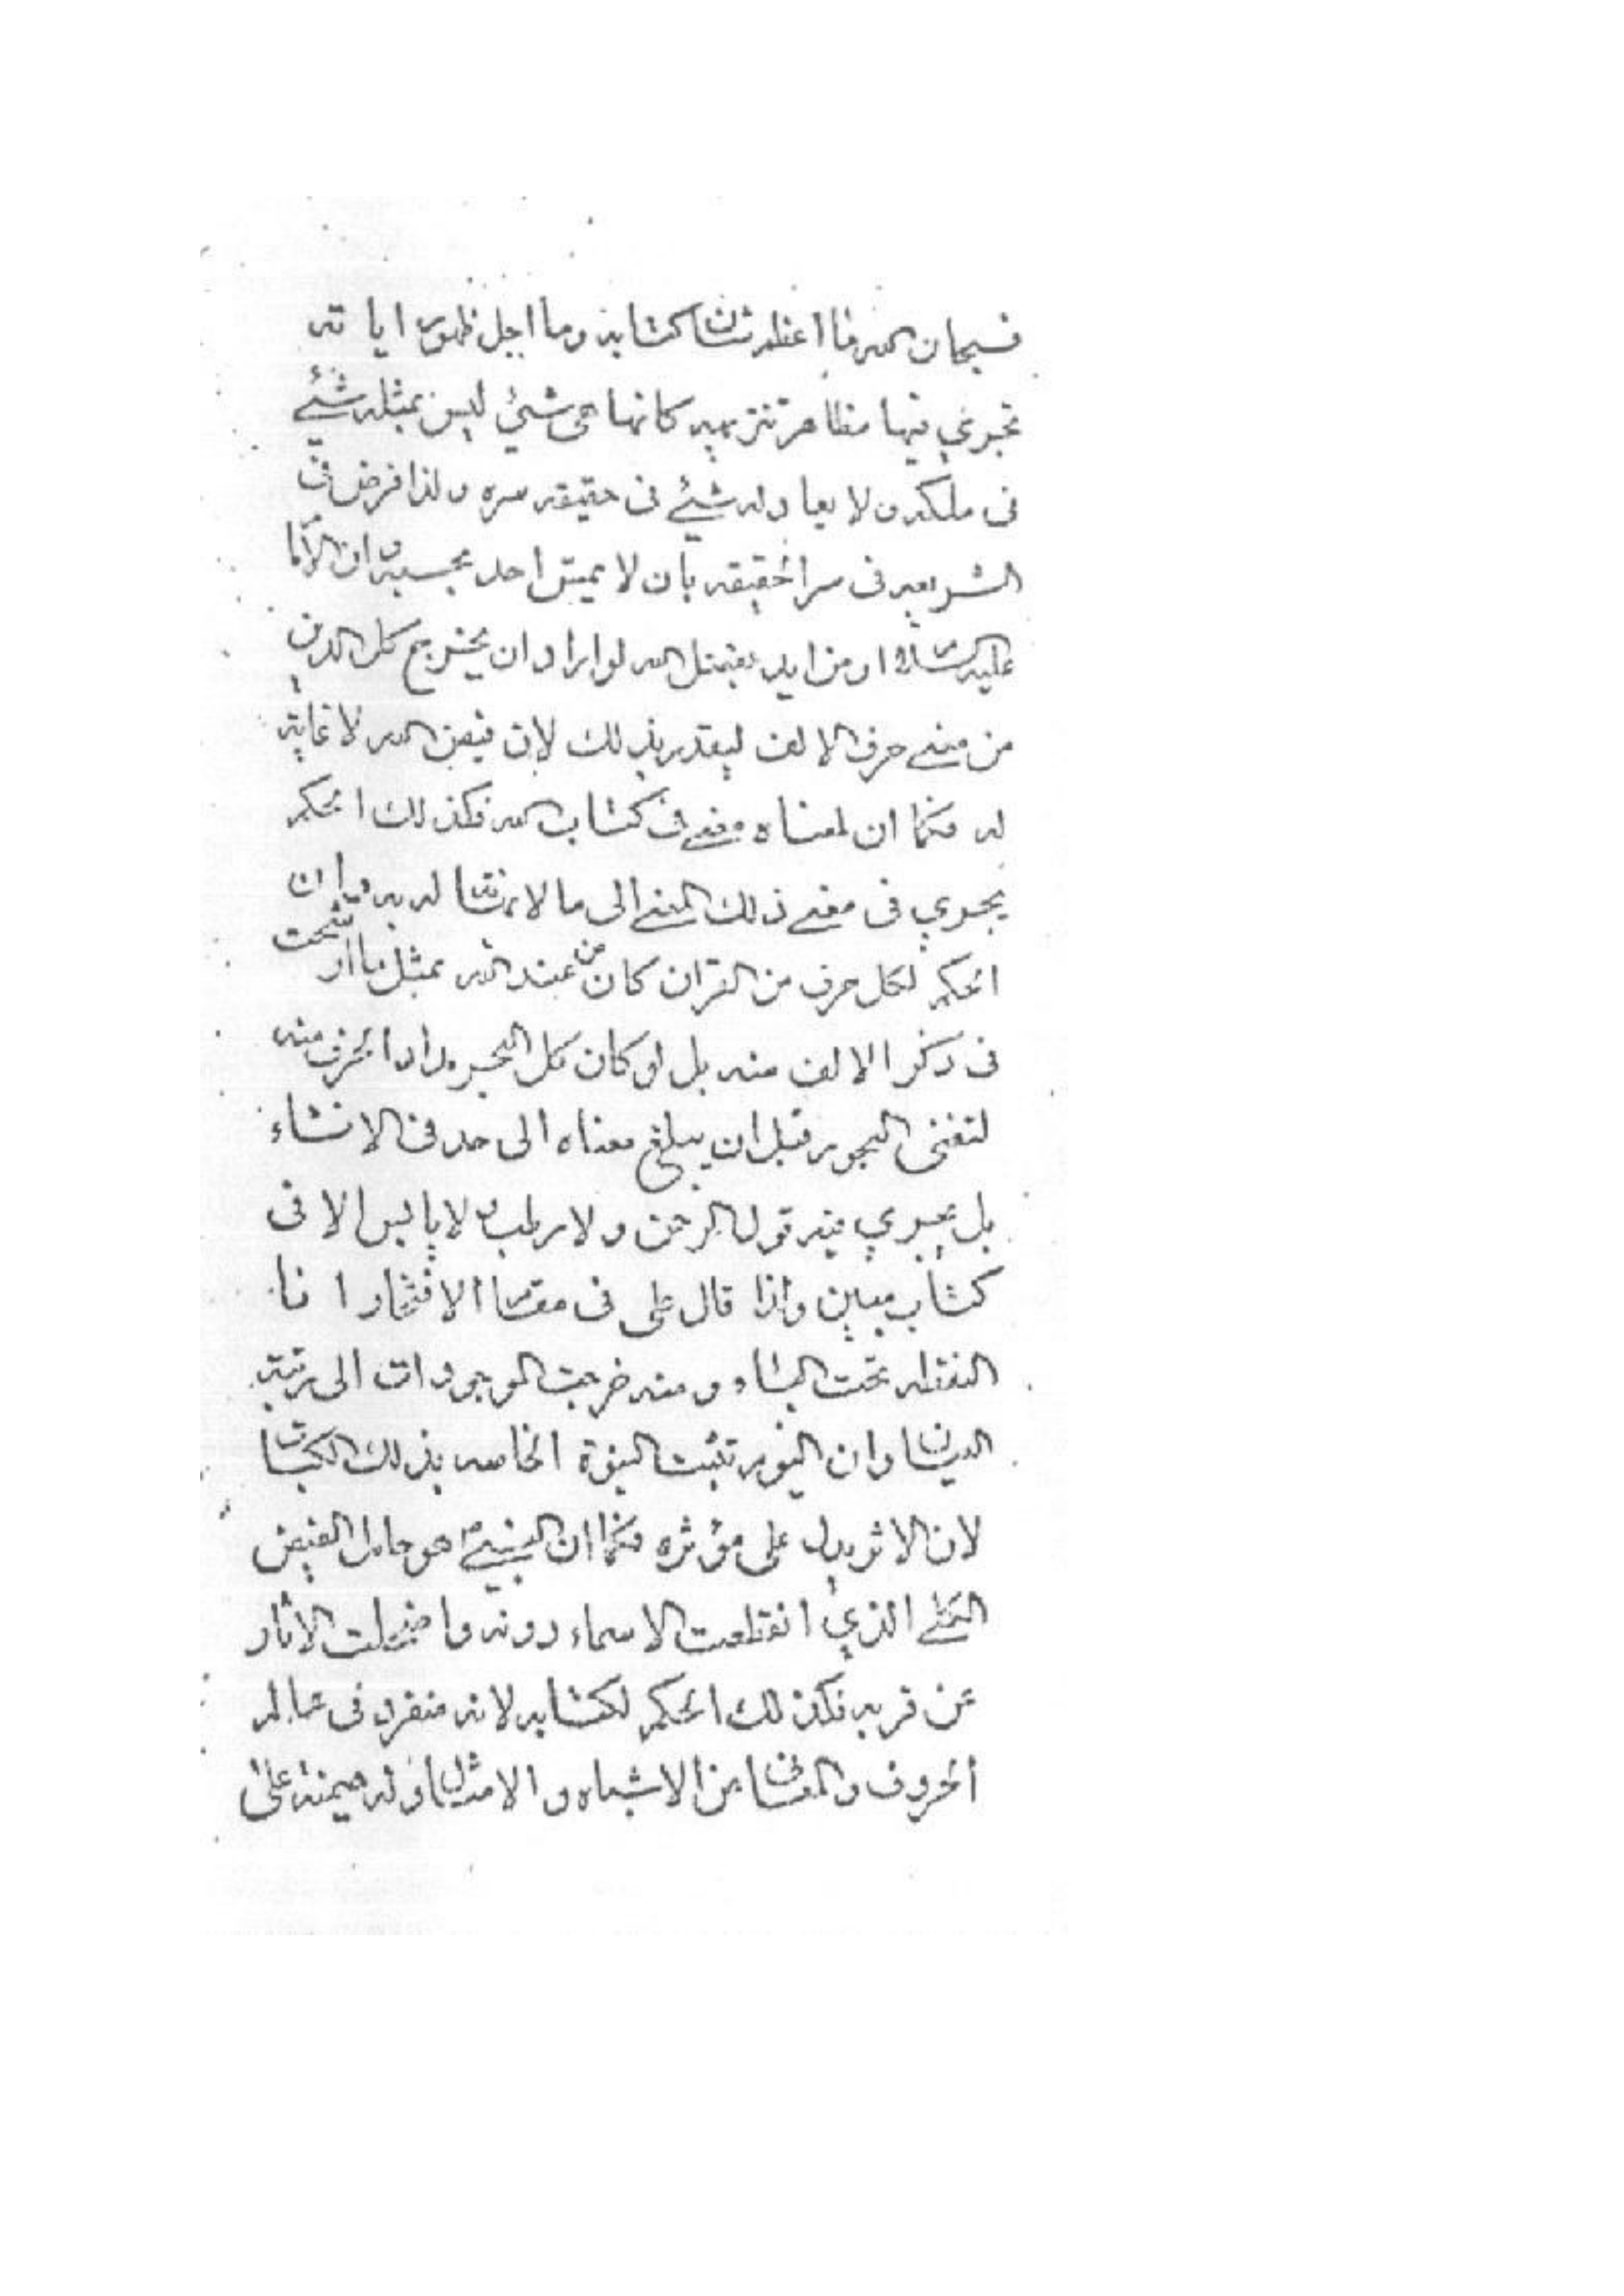 فسبحان الله فما اعظم شان كتابه وما اجل ظهور اياته
تجري فيها مظاهر تنزيهه كانها هى شئ ليس بمثله شئ
فى ملكه ولا يعادله شئ فى حقيقه سره ولذا فرض فى
الشريعه فى سر الحقيقه بان لا يمس احد بجسمه وان الامام
عليه السلام او من ايده بفضل الله لو اراد ان يخرج كل الدين
من معنى حرف الالف ليقدر بذلك لان فيض الله لا غاية
له فكما ان لمعناه معنى فى كتاب الله فكذلك الحكم
يجري فى معنى ذلك المعنى الى ما لا نهاية له به وان
الحكم لكل حرف من القران كان من عند الله بمثل ما ارشحت
فى ذكر الالف منه بل لو كان كل البحر مدادا لحرف منه
لتفنى البحور قبل ان يبلغ معناه الى حد فى الانشاء
بل يجري فيه قول الرحمن ولا رطب ولا يابس الا فى
كتاب مبين ولذا قال على فى مقام الافتخار انا
النقطه تحت الباء ومنه خرجت الموجودات الى رتبة
الديان وان اليوم تثبت النبوة الخاصه بذلك الكتاب
لان الاثر يدل على مؤثره فكما ان النبي ص هو حامل الفيض
الكلي الذي انقطعت الاسماء دونه واضمحلت الاثار
عن قربه فكذلك الحكم لكتابه لانه متفرد فى عالم
الحروف والمعانى من الاشباه والامثال وله هيمنة على